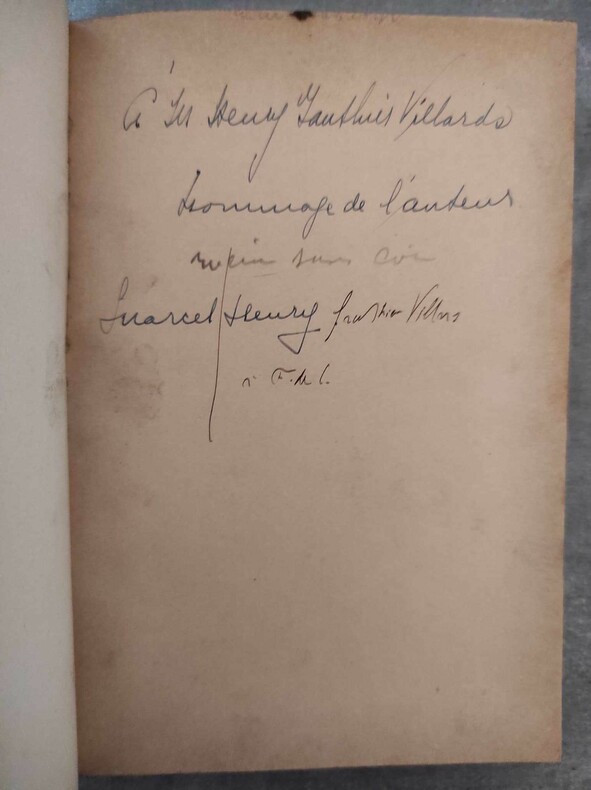 À M Henry Gauthier Villards
Hommage de l'auteur
sans
Marcel Henry Gauthier Villars
à F. de C.